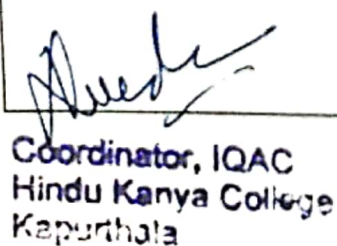 Coordinator, IQAC
Hindu Kanya College
Kapurthala